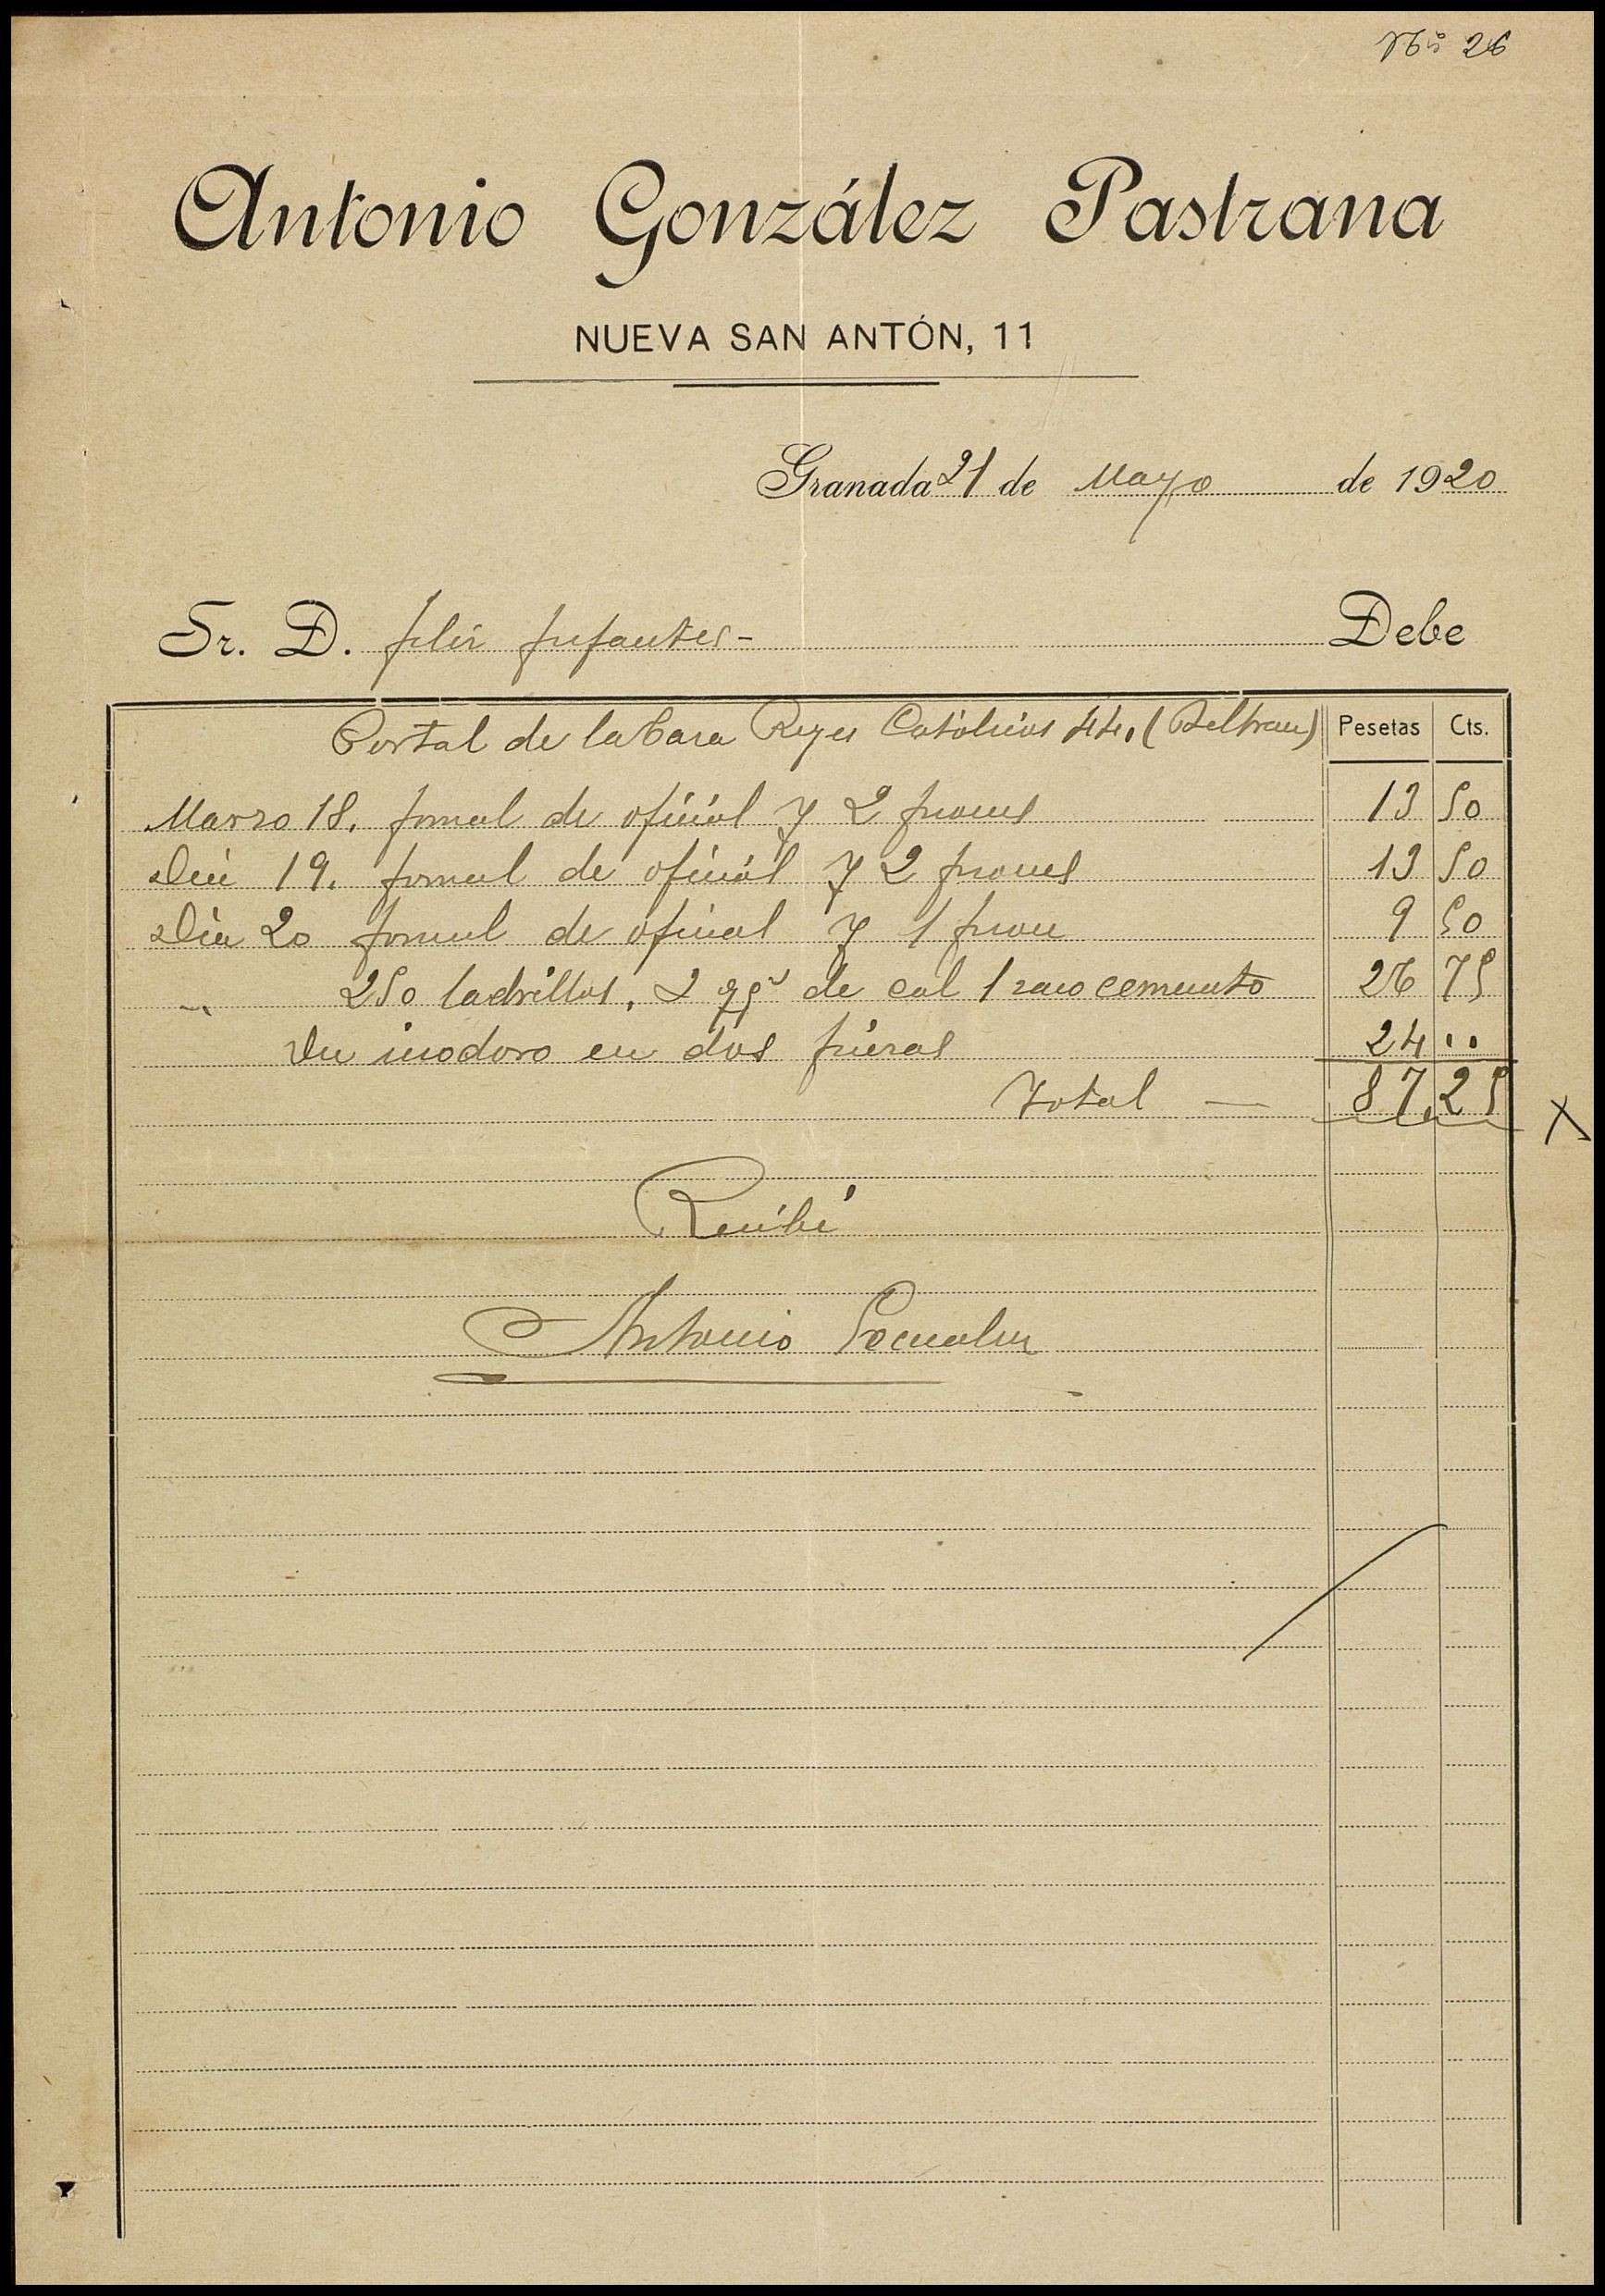 Nº 26
Antonio González Pastrana
NUEVA SAN ANTÓN, 11
Granada 21 de Mayo de 1920
Sr. D. Felix Infantes - Debe
Portal de la Casa Reyes Católicos 44. (Beltran) Pesetas Cts.
Marzo 18. jornal de oficial y 2 piones 13 50
Dia 19. jornal de oficial y 2 piones 13 50
Dia 20 jornal de oficial y 1 pion 9 50
" 250 ladrillos, 2 qqs de cal 1 saco cemento 26 75
Un inodoro en dos piezas 24 ..
Total — 87,25
X
Recibí
Antonio